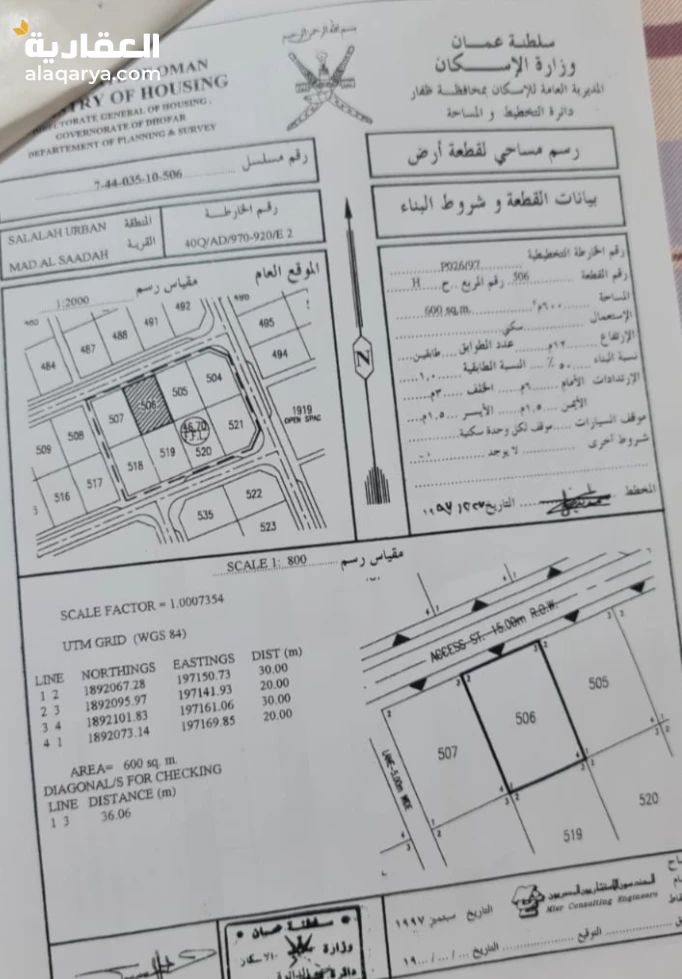 العقارية
alaqarya.com
بسم الله الرحمن الرحيم
OMAN
TRY OF HOUSING
DIRECTORATE GENERAL OF HOUSING,
GOVERNORATE OF DHOFAR
DEPARTEMENT OF PLANNING & SURVEY
سلطنة عمان
وزارة الإسكان
المديرية العامة للإسكان بمحافظة ظفار
دائرة التخطيط و المساحة
رقم مسلسل
7-44-035-10-506
رسم مساحي لقطعة أرض
بيانات القطعة و شروط البناء
SALALAH URBAN المنطقة
MAD.AL SAADAH القرية
رقم الخارطة
40Q/AD/970-920/E 2
الموقع العام
مقياس رسم 1:2000
رقم الخارطة التخطيطية P026/97
رقم القطعة 506 رقم المربع ح H
المساحة ٦٠٠م٢ 600 sq.m.
الإستعمال سكني
الإرتفاع ١٢م عدد الطوابق طابقين
نسبة البناء ٥٠٪ النسبة الطابقية ١,٠
الإرتدادات الأمام ٦م الخلف ٣م
الأيمن ١,٥م الأيسر ١,٥م
موقف السيارات موقف لكل وحدة سكنية
شروط أخرى لا يوجد
المخطط
التاريخ
492
491
488
487
484
495
494
504
505
506
507
508
509
516
517
518
519
520
521
46.70
F.F.L
1919
OPEN SPAC
522
523
535
N
SCALE 1: 800 مقياس رسم
SCALE FACTOR = 1.0007354
UTM GRID (WGS 84)
LINE NORTHINGS EASTINGS DIST (m)
1 2 1892067.28 197150.73 30.00
2 3 1892095.97 197141.93 20.00
3 4 1892101.83 197161.06 30.00
4 1 1892073.14 197169.85 20.00
AREA= 600 sq. m.
DIAGONAL/S FOR CHECKING
LINE DISTANCE (m)
1 3 36.06
ACCESS ST. 15.00m R.O.W.
LANE-5.00m WIDE
507
506
505
519
520
التاريخ سبتمبر ١٩٩٧
Misr Consulting Engineers
التوقيع
التاريخ ... / ... / ... ١٩
سلطنة عمان
وزارة الاسكان